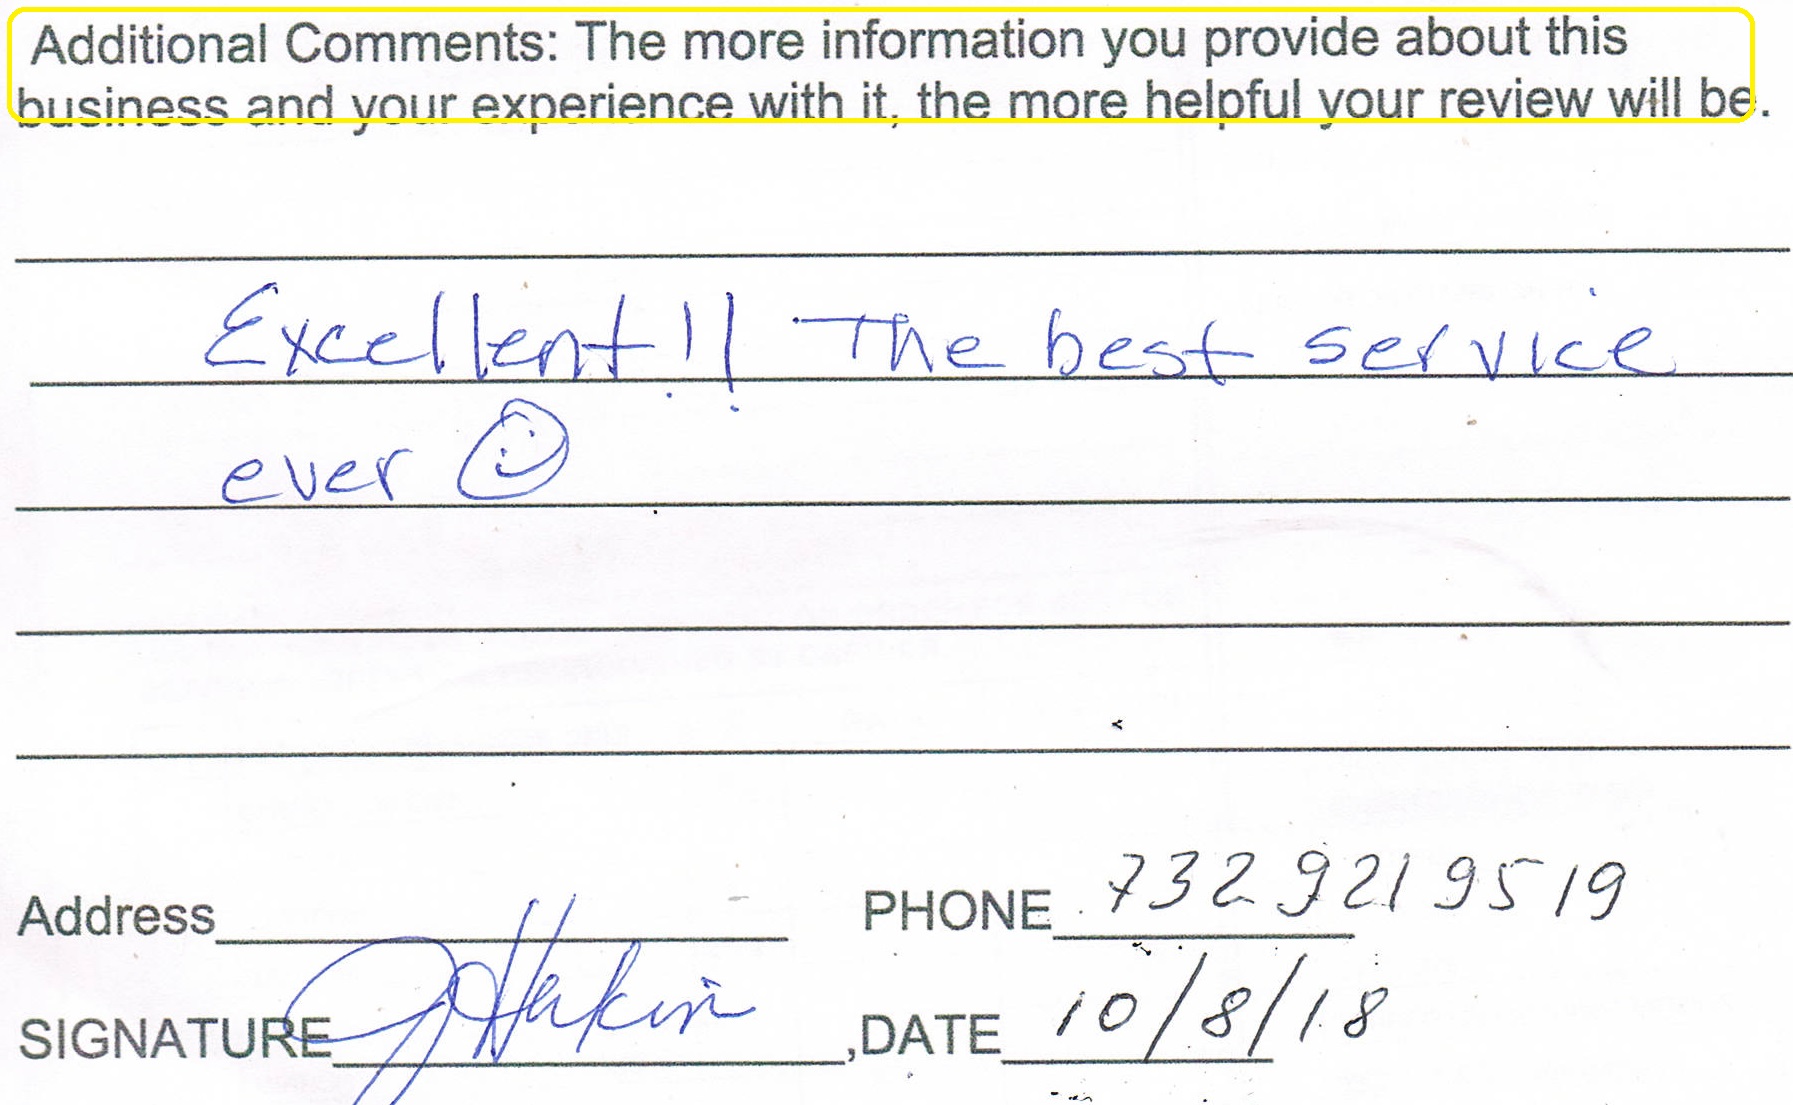 Additional Comments: The more information you provide about this
business and your experience with it, the more helpful your review will be.
Excellent!! The best service
ever ☺
Address PHONE 732 921 9519
SIGNATURE ,DATE 10/8/18